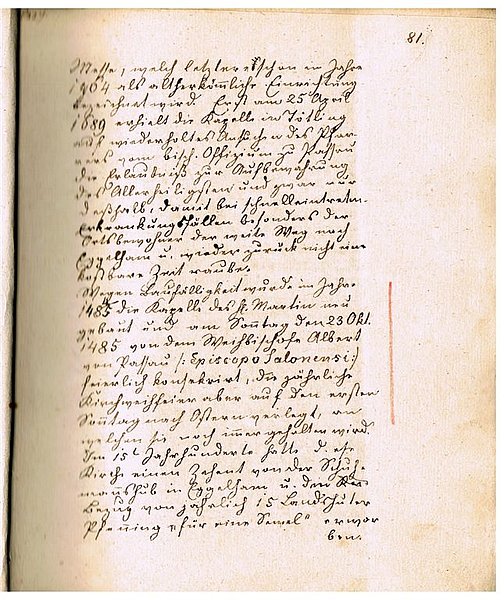 81.
Messe, welch letztere schon im Jahre
1904 als altherkömmliche Einrichtung
bezeichnet wird. Erst am 25 April
1689 erhielt die Kapelle in Tötling
auf wiederholtes Ansuchen des Pfar-
rers vom bisch. Offizium zu Passau
die Erlaubniß zur Aufbewahrung
des Allerheiligsten und zwar nur
deßhalb, damit bei schnell eintreten-
Erkrankungsfällen besonders der
Ortsbewohner der weite Weg nach
Eggelham u. wieder zurück nicht eine
kostbare Zeit raube.
Wegen Baufälligkeit wurde im Jahre
1485 die Kapelle des hl. Martin neu
gebaut und am Sonntag den 23 Okt.
1485 von dem Weihbischofe Albert
von Passau /: Episcopo Salonensi :/
feierlich konsekrirt, die jährliche
Kirchweihfeier aber auf den ersten
Sonntag nach Ostern verlegt, an
welchem sie noch immer gehalten wird.
Im 15t Jahrhunderte hatte d.
Kirche einen Zehent von der
in Eggelham u. den
Bezug von jährlich 15 Landshuter
Pfenning „für eine Semel" erwor
ben.